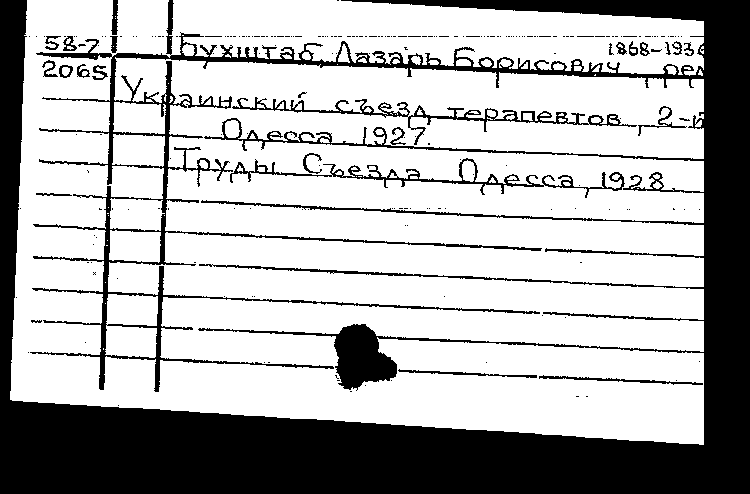 58-7 Бухштаб, Лазарь Борисович, 1868-1936
2065
Украинский съезд терапевтов, 2-й
Одесса. 1927.
Труды Съезда. Одесса, 1928.